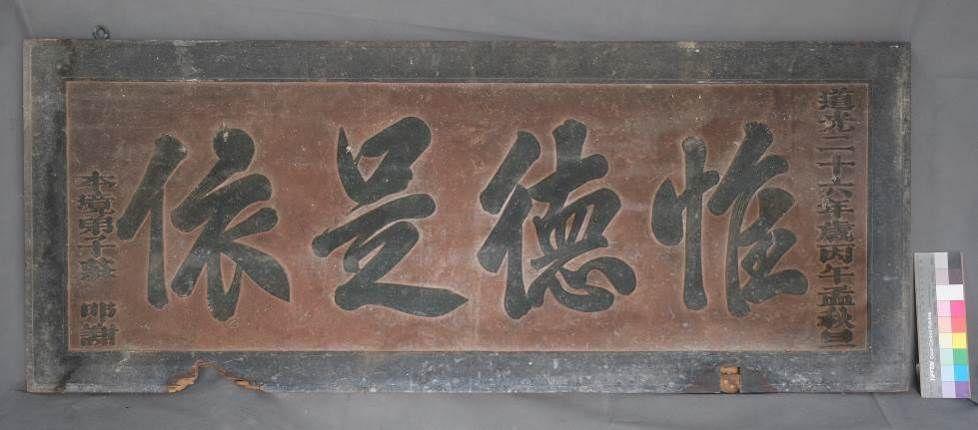 道光二十六年歲丙午孟秋吉
惟德是依
本境弟子 叩謝